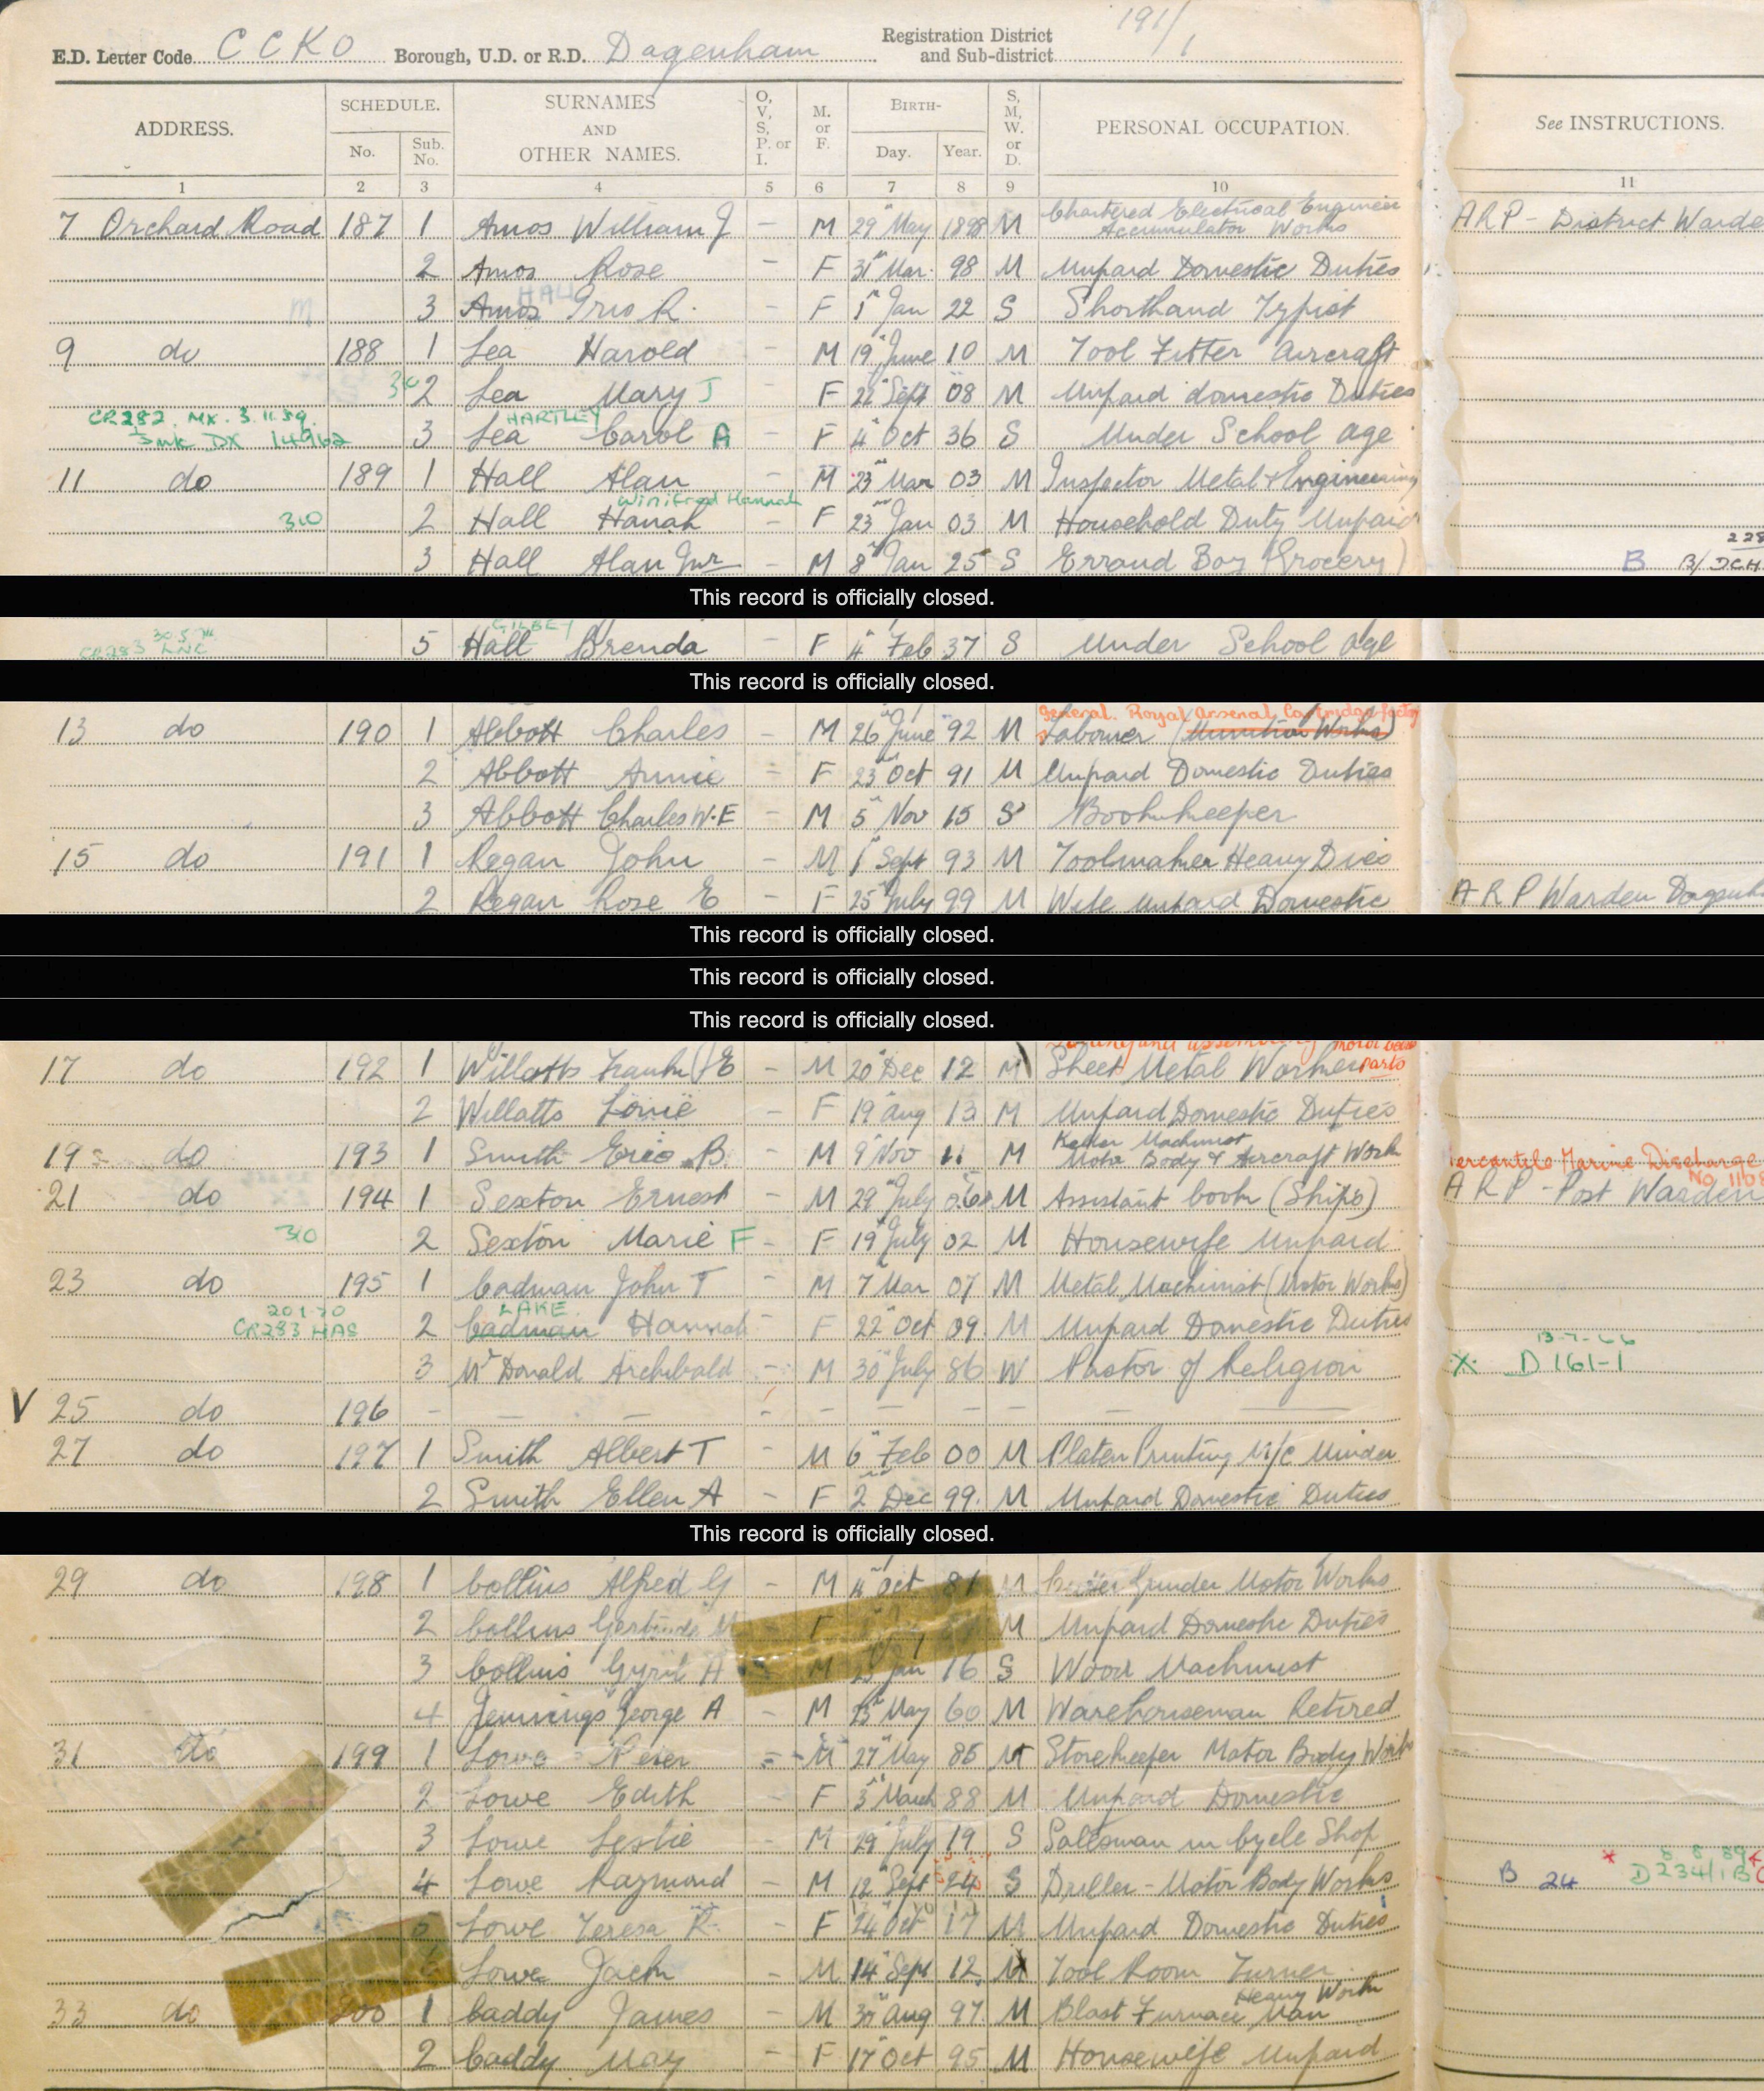 191/1
E.D. Letter Code CCKO Borough, U.D. or R.D. Dagenham Registration District and Sub-district
ADDRESS. SCHEDULE. No. Sub. No. SURNAMES AND OTHER NAMES. O, V, S, P. or I. M. or F. BIRTH- Day. Year. S, M, W. or D. PERSONAL OCCUPATION. See INSTRUCTIONS.
1 2 3 4 5 6 7 8 9 10 11
Chartered Electrical Engineer
7 Orchard Road 187 1 Amos William J - M 29 May 1898 M Accumulator Works ARP - District Warde
2 Amos Rose - F 31 Mar. 98 M Unpaid Domestic Duties
HALL
M 3 Amos R. - F 1 Jan 22 S Shorthand Typist
9 do 188 1 Lea Harold - M 19 June 10 M Tool Fitter Aircraft
310 2 Lea Mary J - F 22 Sept 08 M Unpaid domestic Duties
CR282 MX. 3.11.59 HARTLEY
Smk DX 14962 3 Lea Carol A - F 4 Oct 36 S Under School age
11 do 189 1 Hall Alan - M 23 Mar 03 M Inspector Metal & Engineering
Winifred Hannah
310 2 Hall Hanah - F 23 Jan 03 M Household Duty Unpaid
228
3 Hall Alan Jnr - M 8 Jan 25 S Errand Boy (Grocery) B B/JCH
This record is officially closed.
GILBEY
CR283 LNC 5 Hall Brenda - F 4 Feb 37 S Under School age
This record is officially closed.
General Royal Arsenal Cartridge factory
13 do 190 1 Abbott Charles - M 26 June 92 M Labourer (Munition Works)
2 Abbott Annie - F 23 Oct 91 M Unpaid Domestic Duties
3 Abbott Charles W.E - M 5 Nov 15 S Bookkeeper
15 do 191 1 Regan John - M 1 Sept 93 M Toolmaker Heavy Dies
2 Regan Rose E - F 25 July 99 M Wife unpaid Domestic A R P Warden
This record is officially closed.
This record is officially closed.
This record is officially closed.
assembling motor
17 do 192 1 Willatts Frank E - M 20 Dec 12 M Sheet Metal Worker parts
2 Willatts - F 19 Aug 13 M Unpaid Domestic Duties
Machinist
19 do 193 1 Smith Eric B. - M 9 Nov 11 M Motor Body & Aircraft Work ercantile Marine Discharge
21 do 194 1 Sexton Ernest - M 29 July 06 M Assistant Cook (Ships) A R P - Post Warden
310 2 Sexton Marie F - F 19 July 02 M Housewife Unpaid
23 do 195 1 Cadman John T - M 7 Mar 07 M Metal Machinist (Motor Works)
20.1.70 LAKE
CR283 HAS 2 Cadman Hannah - F 22 Oct 09 M Unpaid Domestic Duties
13-7-66
3 McDonald Archibald - M 30 July 86 W Pastor of Religion X D 161-1
V 25 do 196 - - - - - - - - -
27 do 197 1 Smith Albert T - M 6 Feb 00 M Platen Printing M/c Minder
2 Smith Ellen A - F 2 Dec 99. M Unpaid Domestic Duties
This record is officially closed.
29 do 198 1 Collins Alfred G - M Oct 81 M Grinder Motor Works
2 Collins Gertrude M F M Unpaid Domestic Duties
3 Collins Cyril A M Jan 16 S Wood Machinist
4 Jennings George A - M May 60 M Warehouseman Retired
31 do 199 1 Lowe Peter - M 27 May 85 M Storekeeper Motor Body Works
2 Lowe Edith - F 3 March 88 M Unpaid Domestic
3 Lowe Leslie - M 29 July 19 S Salesman in Cycle Shop
8 8 89
4 Lowe Raymond - M 12 Sept 24 S Driller - Motor Body Works B 24 D234/1B
Lowe Teresa R. - F 24 Oct 17 M Unpaid Domestic Duties
Lowe Jack - M 14 Sept 12 M Tool Room Turner
Heavy Work
33 do 200 1 Caddy James - M 30 Aug 97 M Blast Furnace Man
2 Caddy May - F 17 Oct 95 M Housewife Unpaid